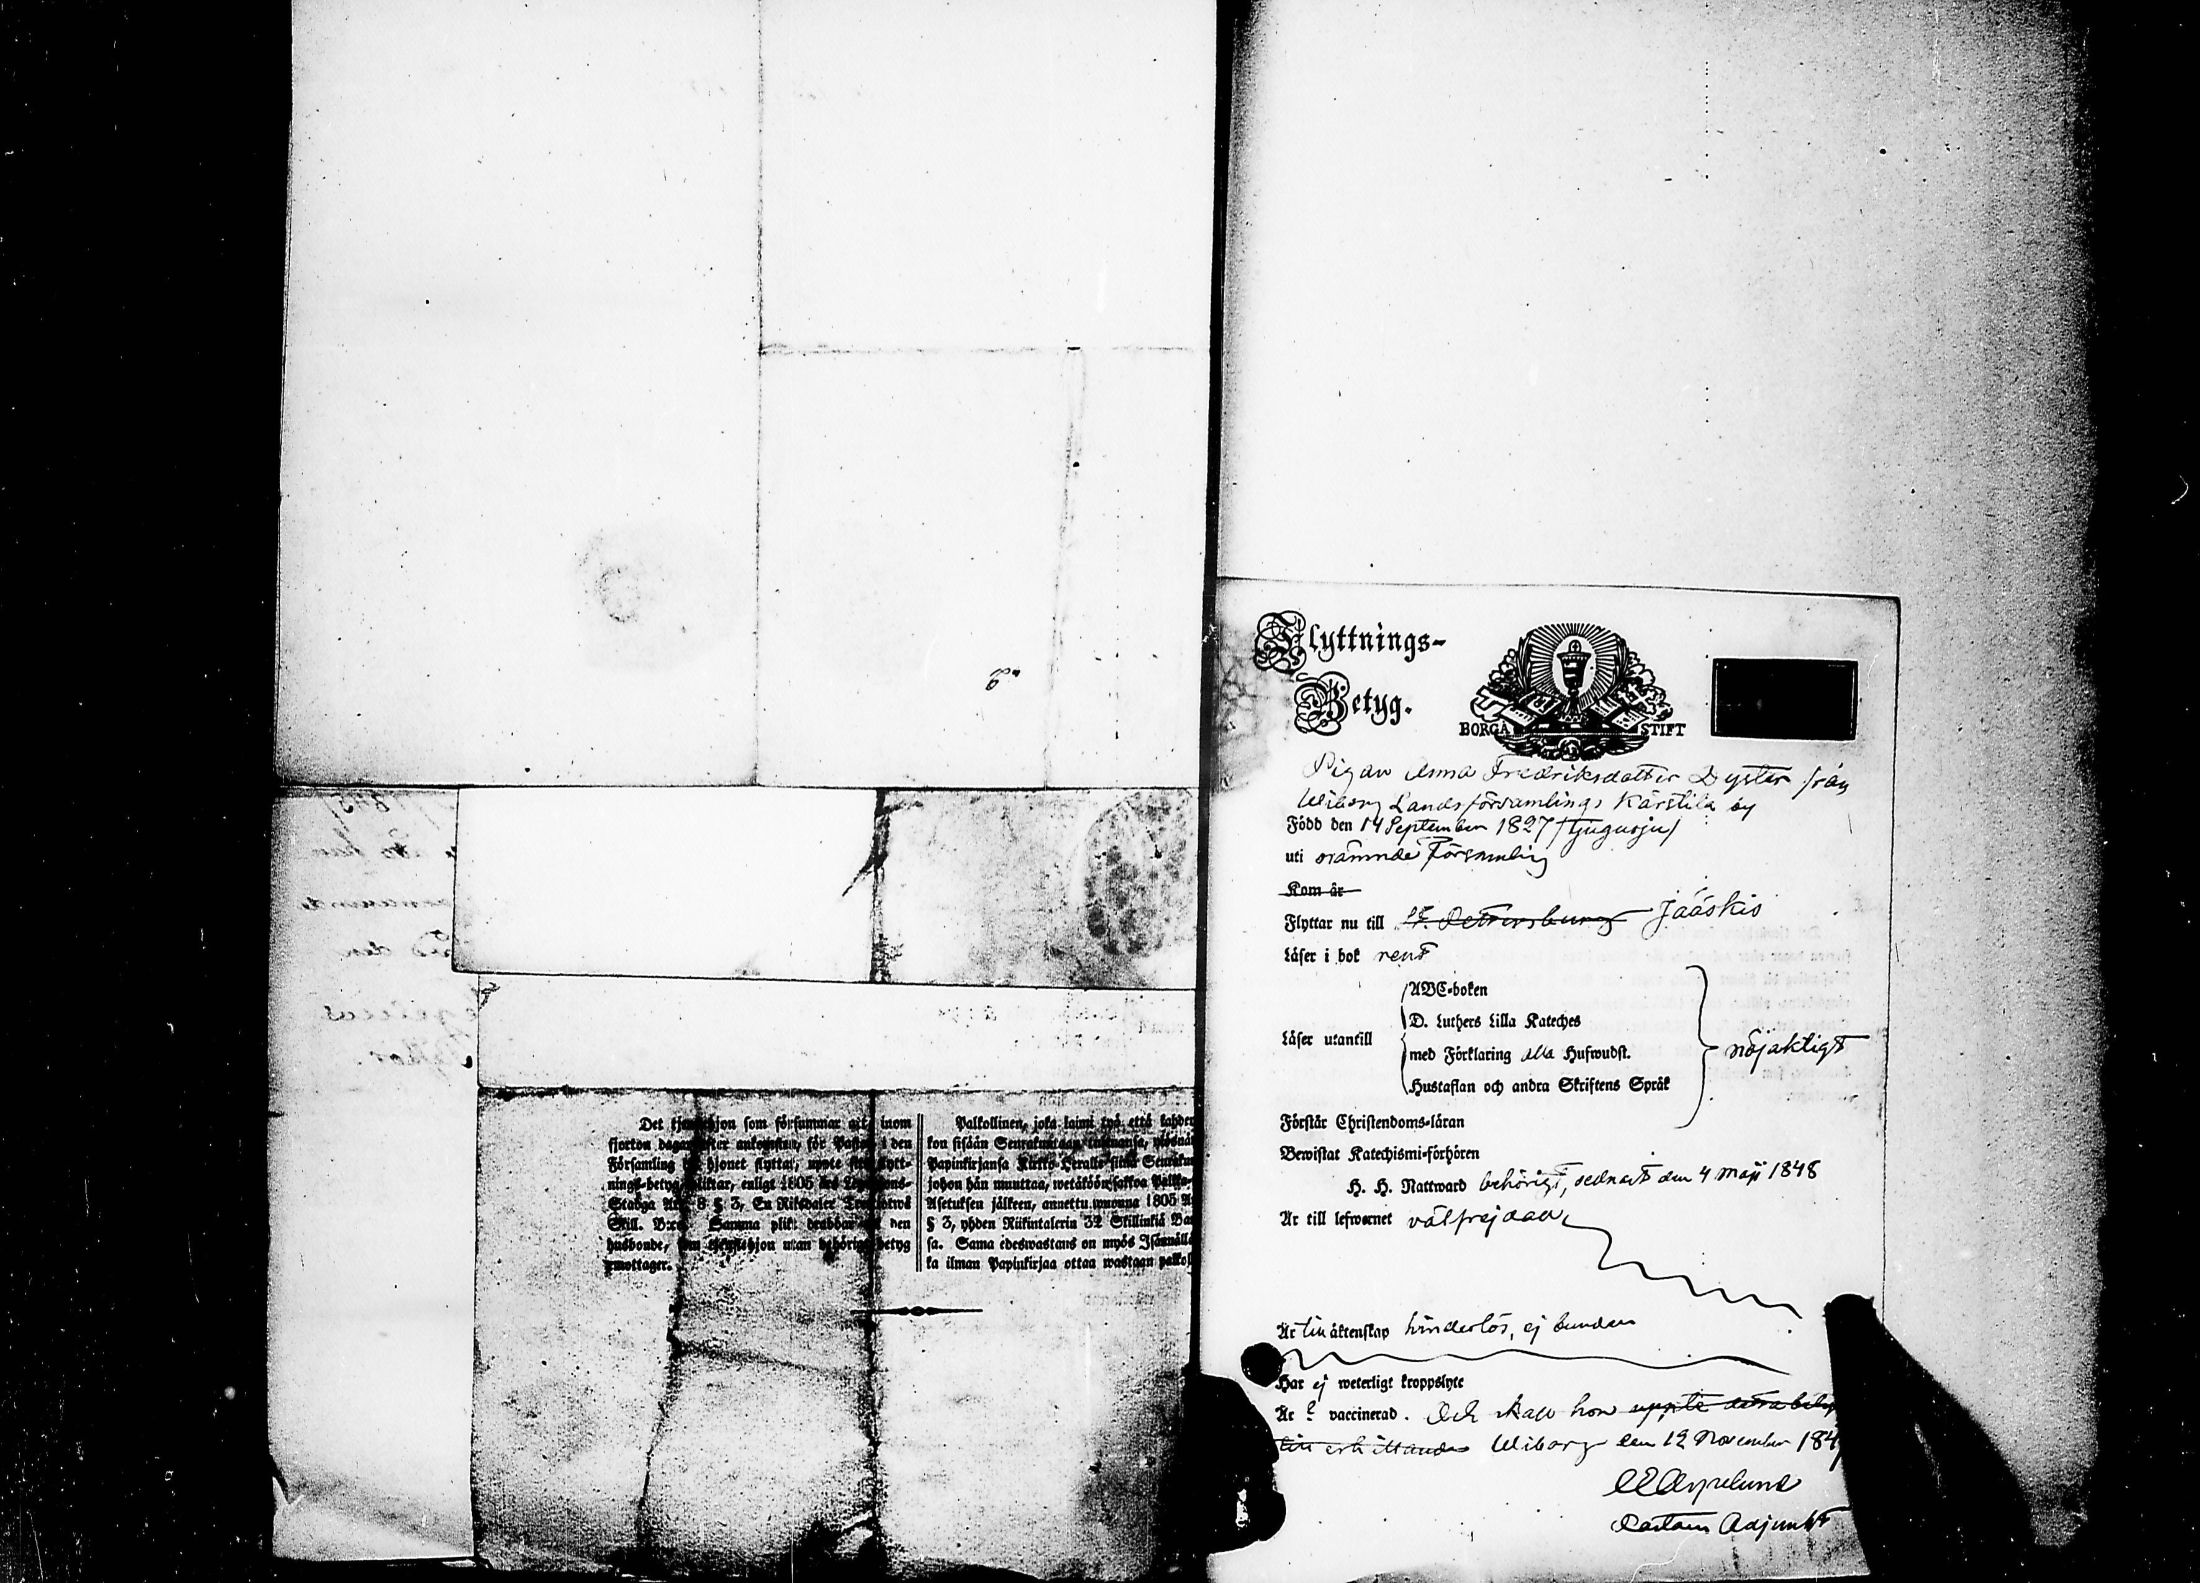 Det tjenstehjon som försummar att, inom
fjorton dagar efter ankomsten, för Pastor i den
Församling dit hjonet flyttat, uppte sitt flytt-
nings-betyg, pliktar, enligt 1805 års Legohjons-
Stadga Art. 8 § 3, En Riksdaler Trettiotwå
Skill. B:co. Samma plikt drabbar ock den
husbonde, som tjenstehjon utan behörigt betyg
emottager.
Palkollinen, joka laimi lyö että kahden
kon sisään Seurakuntaan tultuansa, ylösnäy
Papinkirjansa Kirkko-Herralle siinä Seuraku
johon hän muuttaa, wetäköön sakkoa Palkka-
Asetuksen jälkeen, annettu wuonna 1805 A
§ 3, yhden Riikintalerin 32 Skillinkiä Ba
sa. Sama edeswastaus on myös Isännällä
ka ilman Papinkirjaa ottaa wastaan palkol
Flyttnings-
Betyg.
BORGÅ STIFT
Pigan Anna Fredriksdotter Dyster från
Wiborg Landsförsamlings Kärstilä by
Född den 14 September 1827 /tjugusju/
uti nämnde Församling
Kom år
Flyttar nu till St. Petersburg Jääskis
Läser i bok rent
ABC-boken
D. Luthers Lilla Kateches
Läser utantill
med Förklaring alla Hufwudst.
nöjaktigt
Hustaflan och andra Skriftens Språk
Förstår Christendoms-läran
Bewistat Katechismi-förhören
H. H. Nattward behörigt, sednast den 4 Maji 1848
Är till lefwernet välfrejdad
Är till äktenskap hinderlös, ej bunden
Har ej weterligt kroppslyte
Är vaccinerad. Och skall hon uppte detta betyg
Wiborg den 12 November 184
Pastors Adjunkt